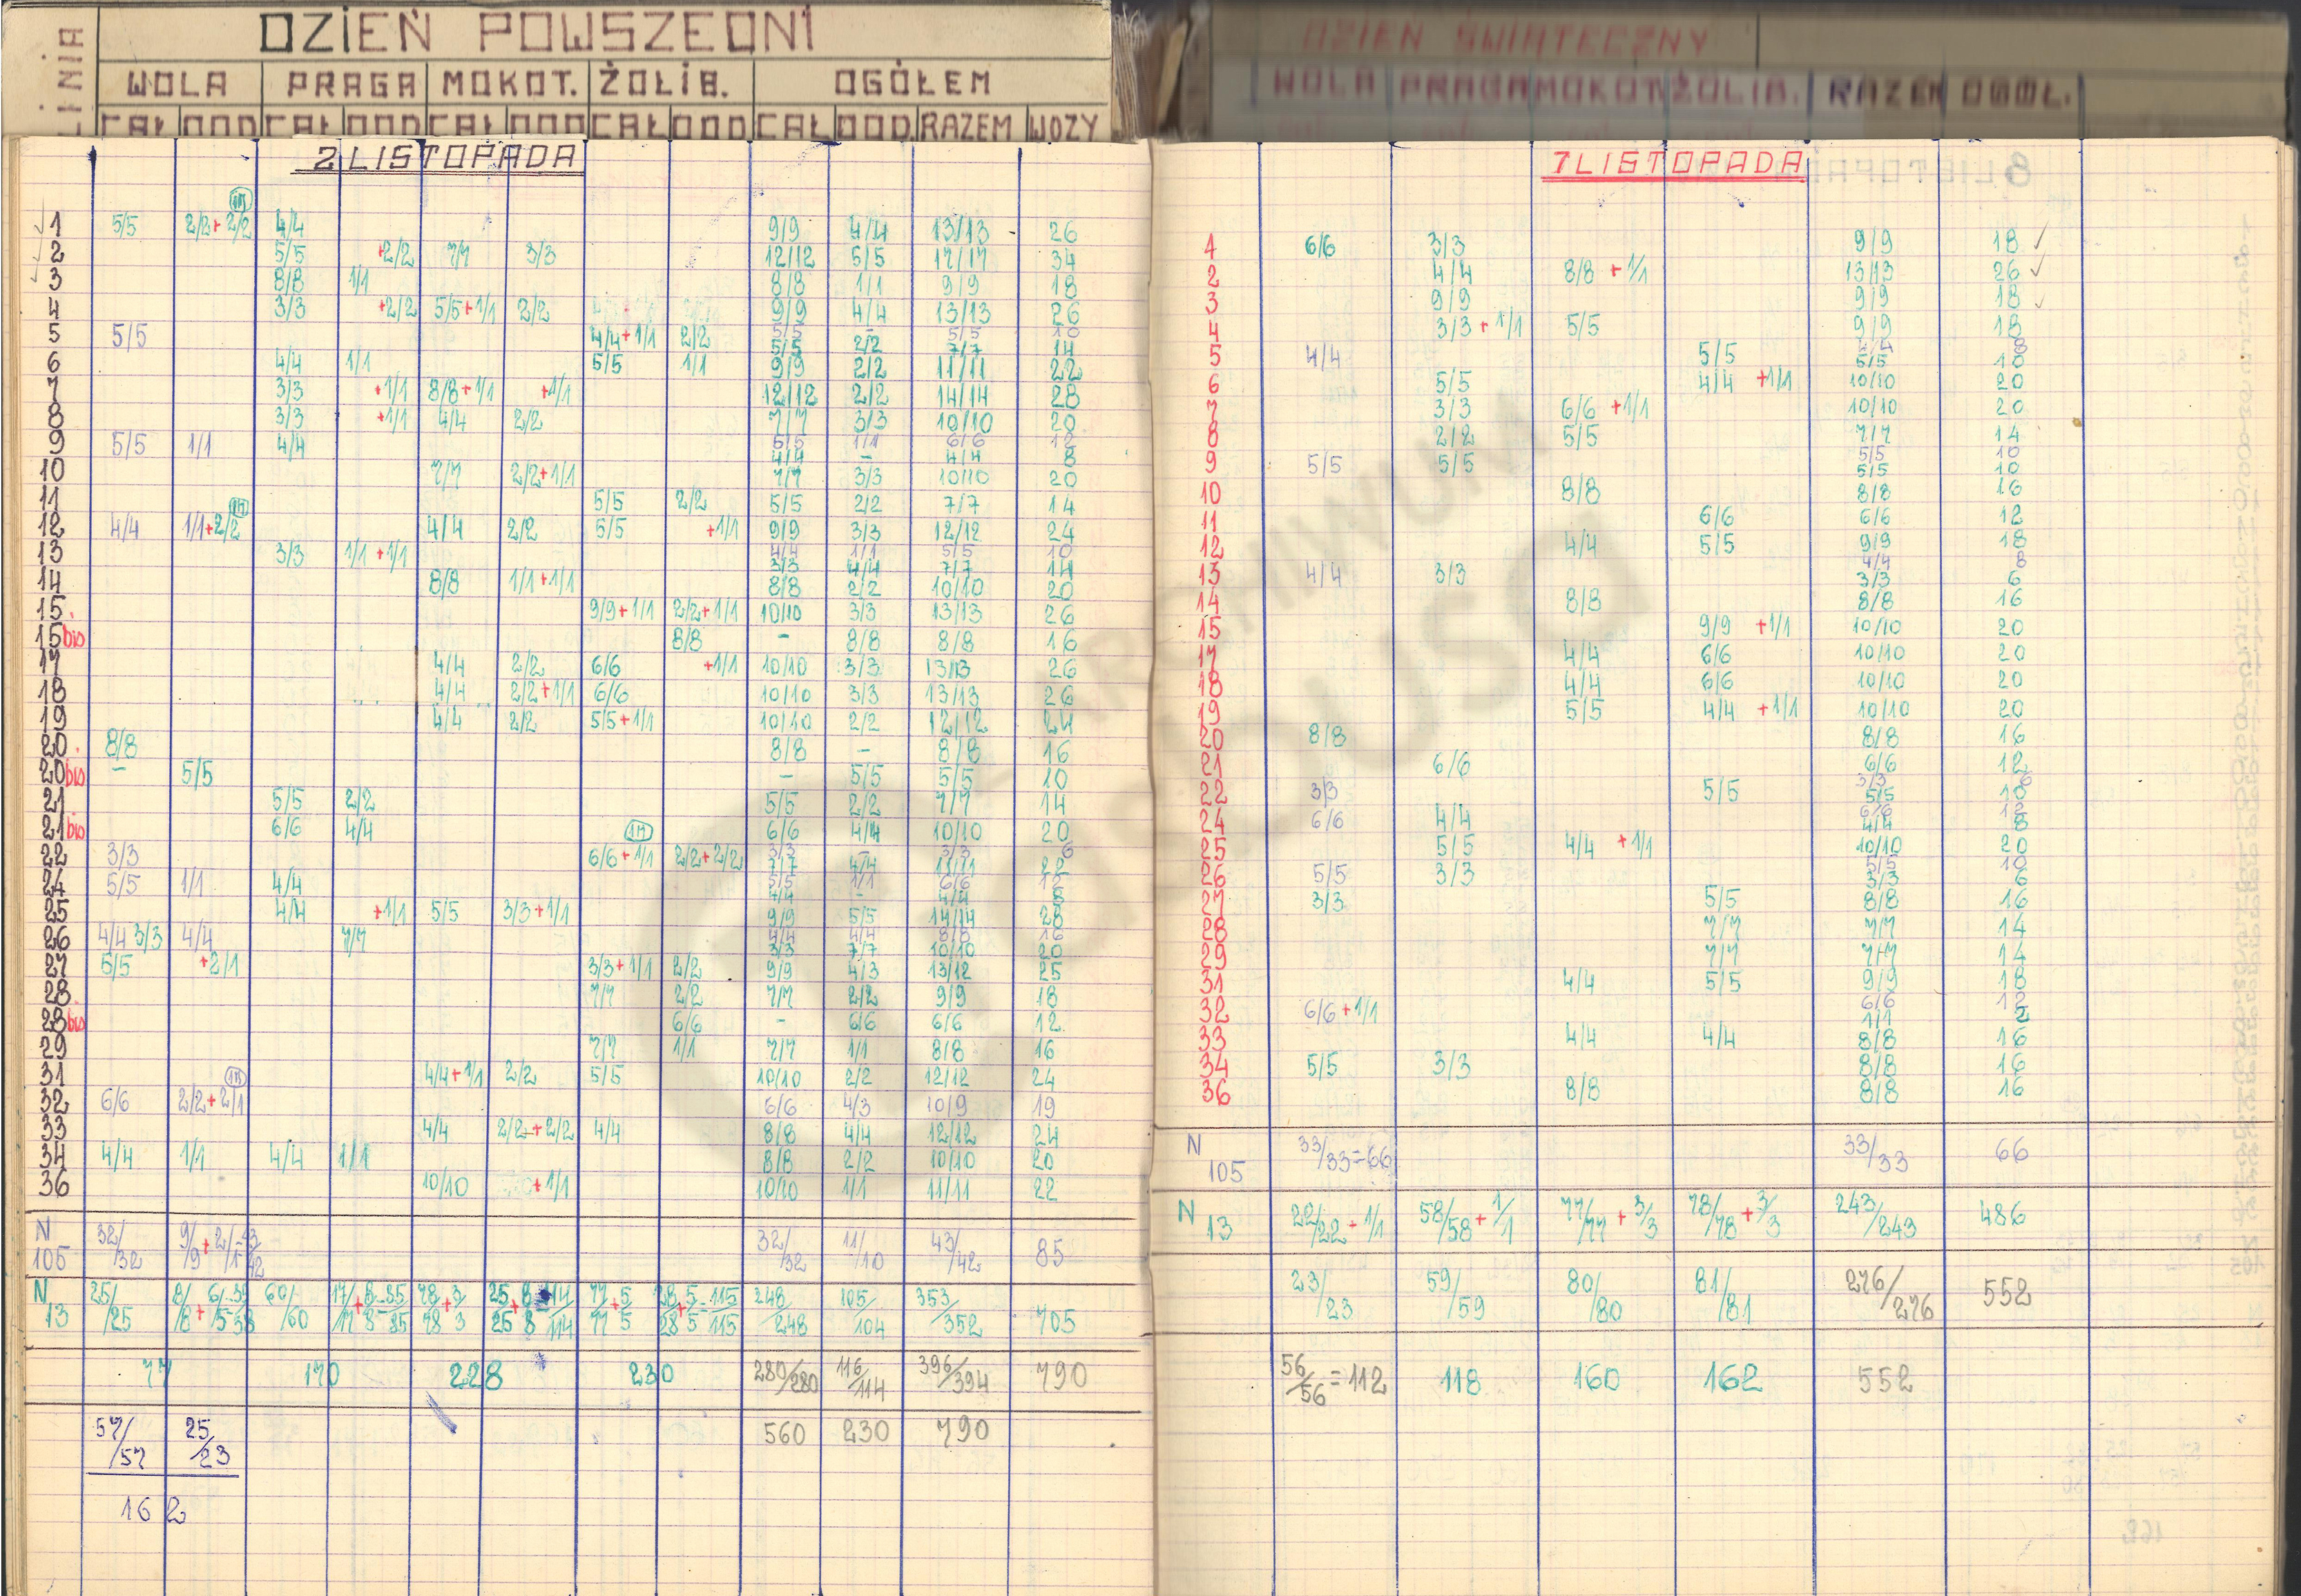 LINIA
DZIEŃ POWSZEDNI
WOLA PRAGA MOKOT. ŻOLIB. OGÓŁEM
CAŁ DOD CAŁ DOD CAŁ DOD CAŁ DOD CAŁ DOD. RAZEM WOZY
2 LISTOPADA
1 5/5 2/2+2/2 4/4 9/9 4/4 13/13 26
2 5/5 +2/2 7/7 3/3 12/12 5/5 17/17 34
3 8/8 1/1 8/8 1/1 9/9 18
4 3/3 +2/2 5/5+1/1 2/2 9/9 4/4 13/13 26
5 5/5 5/5 - 5/5 10
4/4+1/1 2/2 5/5 2/2 7/7 14
6 4/4 1/1 5/5 1/1 9/9 2/2 11/11 22
7 3/3 +1/1 8/8+1/1 +1/1 12/12 2/2 14/14 28
8 3/3 +1/1 4/4 2/2 7/7 3/3 10/10 20
9 5/5 1/1 4/4 5/5 1/1 6/6 12
4/4 - 4/4 8
10 7/7 2/2+1/1 7/7 3/3 10/10 20
11 5/5 2/2 5/5 2/2 7/7 14
12 4/4 1/1+2/2 4/4 2/2 5/5 +1/1 9/9 3/3 12/12 24
13 3/3 1/1+1/1 4/4 1/1 5/5 10
3/3 4/4 7/7 14
14 8/8 1/1+1/1 8/8 2/2 10/10 20
15 9/9+1/1 2/2+1/1 10/10 3/3 13/13 26
15bis 8/8 - 8/8 8/8 16
17 4/4 2/2 6/6 +1/1 10/10 3/3 13/13 26
18 4/4 2/2+1/1 6/6 10/10 3/3 13/13 26
19 4/4 2/2 5/5+1/1 10/10 2/2 12/12 24
20 8/8 8/8 - 8/8 16
20bis - 5/5 - 5/5 5/5 10
21 5/5 2/2 5/5 2/2 7/7 14
21bis 6/6 4/4 6/6 4/4 10/10 20
22 3/3 6/6+1/1 2/2+2/2 3/3 - 3/3 6
7/7 4/4 11/11 22
24 5/5 1/1 4/4 5/5 1/1 6/6 12
4/4 - 4/4 8
25 4/4 +1/1 5/5 3/3+1/1 9/9 5/5 14/14 28
26 4/4 3/3 4/4 7/7 4/4 4/4 8/8 16
3/3 7/7 10/10 20
27 5/5 +2/1 3/3+1/1 2/2 9/9 4/3 13/12 25
28 7/7 2/2 7/7 2/2 9/9 18
28bis 6/6 - 6/6 6/6 12
29 7/7 1/1 7/7 1/1 8/8 16
31 4/4+1/1 2/2 5/5 10/10 2/2 12/12 24
32 6/6 2/2+2/1 6/6 4/3 10/9 19
33 4/4 2/2+2/2 4/4 8/8 4/4 12/12 24
34 4/4 1/1 4/4 1/1 8/8 2/2 10/10 20
36 10/10 +1/1 10/10 1/1 11/11 22
N 105 32/32 9/9+2/1=43/42 32/32 11/10 43/42 85
N 13 25/25 8/8+6/5=39/38 60/60 17/17+8/8=85/85 78/78+3/3 25/25+8/8=114/114 77/77+5/5 28/28+5/5=115/115 248/248 105/104 353/352 705
77 170 228 230 280/280 116/114 396/394 790
57/57 25/23 560 230 790
162
DZIEŃ ŚWIĄTECZNY
WOLA PRAGA MOKOT. ŻOLIB. RAZEM OGÓŁ.
7 LISTOPADA
1 6/6 3/3 9/9 18
2 4/4 8/8 +1/1 13/13 26
3 9/9 9/9 18
4 3/3+1/1 5/5 9/9 18
5 4/4 5/5 4/4 8
5/5 10
6 5/5 4/4 +1/1 10/10 20
7 3/3 6/6 +1/1 10/10 20
8 2/2 5/5 7/7 14
9 5/5 5/5 5/5 10
5/5 10
10 8/8 8/8 16
11 6/6 6/6 12
12 4/4 5/5 9/9 18
13 4/4 3/3 4/4 8
3/3 6
14 8/8 8/8 16
15 9/9 +1/1 10/10 20
17 4/4 6/6 10/10 20
18 4/4 6/6 10/10 20
19 5/5 4/4 +1/1 10/10 20
20 8/8 8/8 16
21 6/6 6/6 12
22 3/3 5/5 3/3 6
5/5 10
24 6/6 4/4 6/6 12
4/4 8
25 5/5 4/4 +1/1 10/10 20
26 5/5 3/3 5/5 10
3/3 6
27 3/3 5/5 8/8 16
28 7/7 7/7 14
29 7/7 7/7 14
31 4/4 5/5 9/9 18
32 6/6+1/1 6/6 12
1/1 2
33 4/4 4/4 8/8 16
34 5/5 3/3 8/8 16
36 8/8 8/8 16
N 105 33/33=66 33/33 66
N 13 22/22+1/1 58/58+1/1 77/77+3/3 78/78+3/3 243/243 486
23/23 59/59 80/80 81/81 276/276 552
56/56=112 118 160 162 552